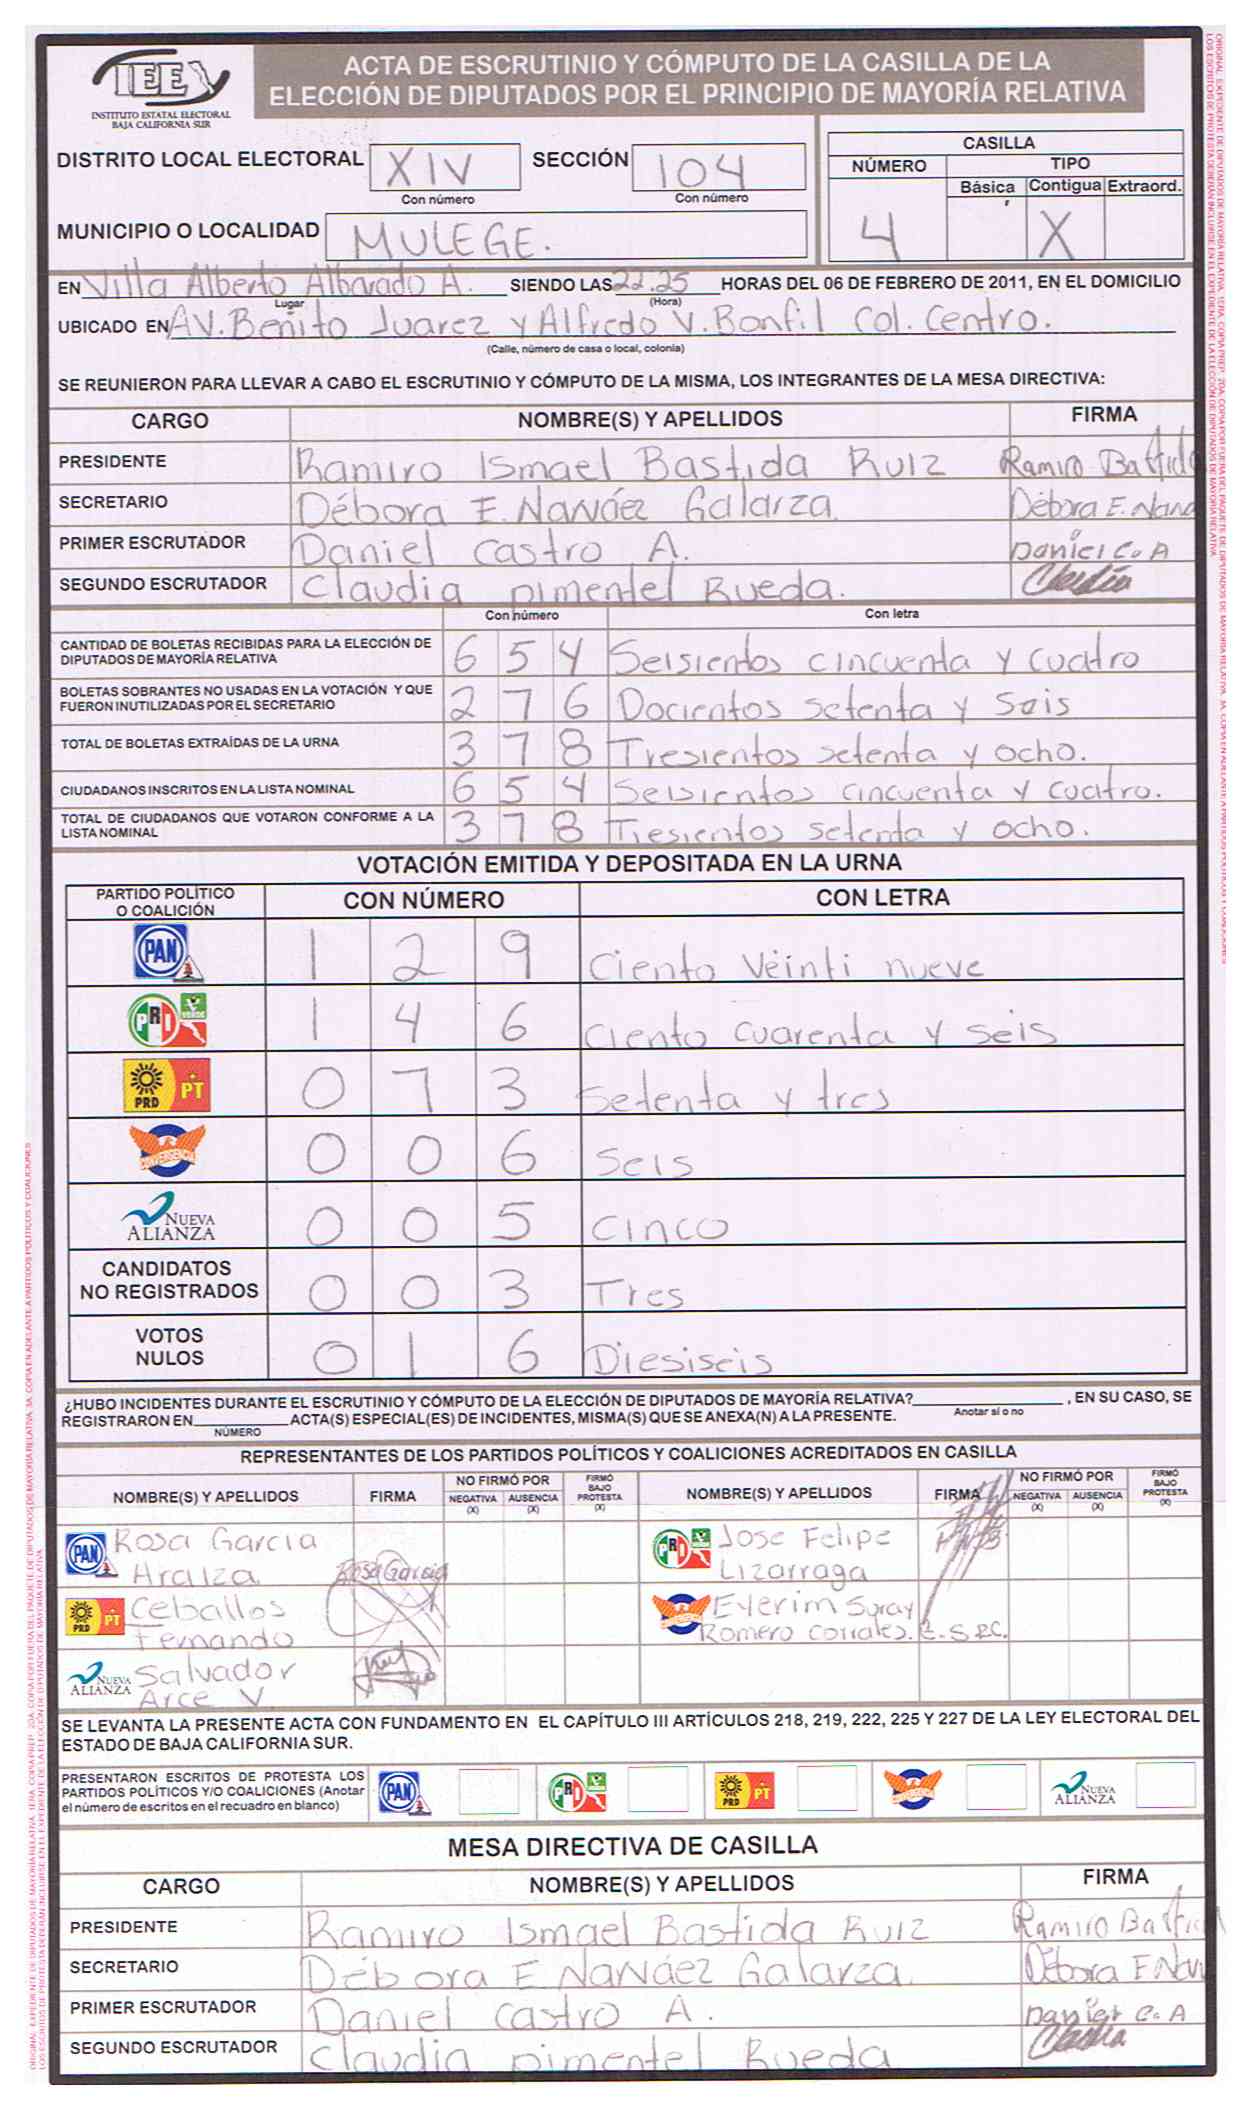 IEE
INSTITUTO ESTATAL ELECTORAL
BAJA CALIFORNIA SUR
ACTA DE ESCRUTINIO Y CÓMPUTO DE LA CASILLA DE LA
ELECCIÓN DE DIPUTADOS POR EL PRINCIPIO DE MAYORÍA RELATIVA
DISTRITO LOCAL ELECTORAL XIV SECCIÓN 104
Con número Con número
MUNICIPIO O LOCALIDAD MULEGE.
CASILLA
NÚMERO TIPO
Básica Contigua Extraord.
4 X
EN Villa Alberto Albarado A. SIENDO LAS 22.25 HORAS DEL 06 DE FEBRERO DE 2011, EN EL DOMICILIO
Lugar (Hora)
UBICADO EN AV. Benito Juarez y Alfredo V. Bonfil Col. Centro.
(Calle, número de casa o local, colonia)
SE REUNIERON PARA LLEVAR A CABO EL ESCRUTINIO Y CÓMPUTO DE LA MISMA, LOS INTEGRANTES DE LA MESA DIRECTIVA:
CARGO NOMBRE(S) Y APELLIDOS FIRMA
PRESIDENTE Ramiro Ismael Bastida Ruiz Ramiro Bastida
SECRETARIO Débora E. Narváez Galarza. Débora E. Narv
PRIMER ESCRUTADOR Daniel Castro A. Daniel C. A
SEGUNDO ESCRUTADOR Claudia pimentel Rueda. Claudia
Con número Con letra
CANTIDAD DE BOLETAS RECIBIDAS PARA LA ELECCIÓN DE
DIPUTADOS DE MAYORÍA RELATIVA 6 5 4 Seisientos cincuenta y cuatro
BOLETAS SOBRANTES NO USADAS EN LA VOTACIÓN Y QUE
FUERON INUTILIZADAS POR EL SECRETARIO 2 7 6 Docientos setenta y seis
TOTAL DE BOLETAS EXTRAÍDAS DE LA URNA 3 7 8 Tresientos setenta y ocho.
CIUDADANOS INSCRITOS EN LA LISTA NOMINAL 6 5 4 Seisientos cincuenta y cuatro.
TOTAL DE CIUDADANOS QUE VOTARON CONFORME A LA
LISTA NOMINAL 3 7 8 Tresientos setenta y ocho.
VOTACIÓN EMITIDA Y DEPOSITADA EN LA URNA
PARTIDO POLÍTICO
O COALICIÓN CON NÚMERO CON LETRA
PAN 1 2 9 Ciento Veinti nueve
PRI VERDE 1 4 6 Ciento cuarenta y seis
PRD PT 0 7 3 Setenta y tres
CONVERGENCIA 0 0 6 Seis
NUEVA ALIANZA 0 0 5 Cinco
CANDIDATOS
NO REGISTRADOS 0 0 3 Tres
VOTOS
NULOS 0 1 6 Diesiseis
¿HUBO INCIDENTES DURANTE EL ESCRUTINIO Y CÓMPUTO DE LA ELECCIÓN DE DIPUTADOS DE MAYORÍA RELATIVA? , EN SU CASO, SE
Anotar sí o no
REGISTRARON EN ACTA(S) ESPECIAL(ES) DE INCIDENTES, MISMA(S) QUE SE ANEXA(N) A LA PRESENTE.
NÚMERO
REPRESENTANTES DE LOS PARTIDOS POLÍTICOS Y COALICIONES ACREDITADOS EN CASILLA
NOMBRE(S) Y APELLIDOS FIRMA NO FIRMÓ POR NEGATIVA (X) AUSENCIA (X) FIRMÓ BAJO PROTESTA (X) NOMBRE(S) Y APELLIDOS FIRMA NO FIRMÓ POR NEGATIVA (X) AUSENCIA (X) FIRMÓ BAJO PROTESTA (X)
PAN Rosa Garcia PRI VERDE Jose Felipe
Araiza Rosa Garcia Lizarraga
PRD PT Ceballos Eyerim Suray
Fernando Romero Corrales. E. S. R.C.
NUEVA ALIANZA Salvador
Arce V.
SE LEVANTA LA PRESENTE ACTA CON FUNDAMENTO EN EL CAPÍTULO III ARTÍCULOS 218, 219, 222, 225 Y 227 DE LA LEY ELECTORAL DEL
ESTADO DE BAJA CALIFORNIA SUR.
PRESENTARON ESCRITOS DE PROTESTA LOS
PARTIDOS POLÍTICOS Y/O COALICIONES (Anotar
el número de escritos en el recuadro en blanco) PAN PRI PRD PT NUEVA ALIANZA
MESA DIRECTIVA DE CASILLA
CARGO NOMBRE(S) Y APELLIDOS FIRMA
PRESIDENTE Ramiro Ismael Bastida Ruiz Ramiro Bastid
SECRETARIO Débora E Narváez Galarza. Débora E Narv
PRIMER ESCRUTADOR Daniel Castro A. Daniel C. A
SEGUNDO ESCRUTADOR Claudia pimentel Rueda Claudia